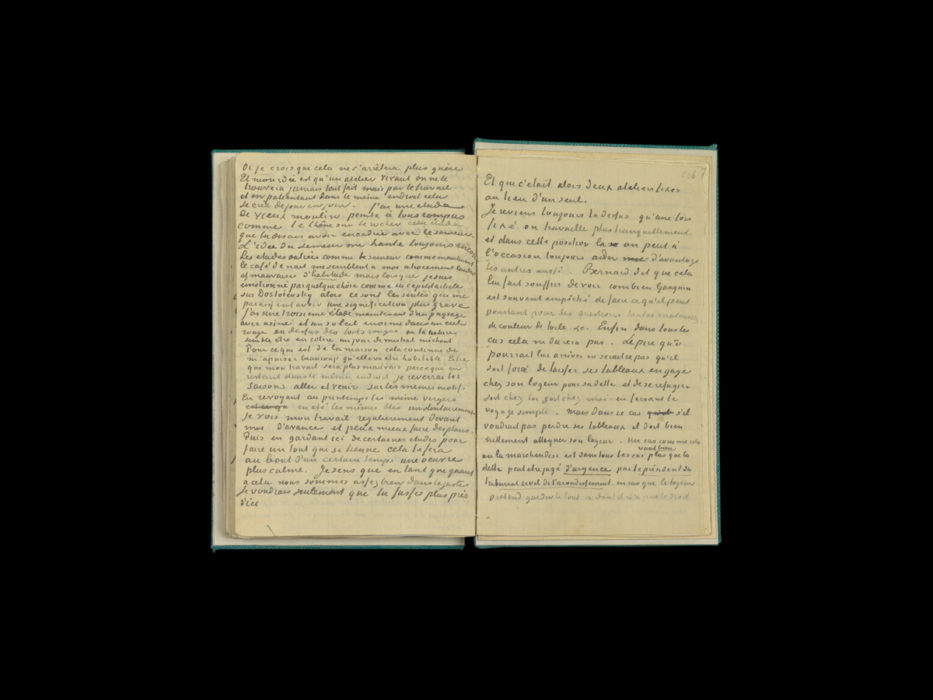 Or je crois que cela ne s'arrêtera plus guère
Et mon idée est qu'un atelier vivant on ne le
trouvera jamais tout fait mais par le travail
et en patientant dans le même endroit cela
se crée de jour en jour. J'ai une etude
De vieux moulin peinte à tons rompus
comme le chêne sur le rocher cette etude
que tu disais avoir encadrée avec le semeur
L'idée du semeur me hante toujours encore
Les etudes outrées comme le semeur comme maintenant
le café de nuit me semblent à moi atrocement laides
et mauvaises d'habitude mais lorsque je suis
emotionné par quelque chose comme ici ce petit article
sur Dostoievsky alors ce sont les seules qui me
paraissent avoir une signification plus grave
J'ai une troisieme etude maintenant d'un paysage
avec usine et un soleil enorme dans un ciel
rouge au dessus des toits rouges où la nature
semble être en colère un jour de mistral méchant
Pour ce qui est de la maison cela continue de
m'apaiser beaucoup qu'elle va être habitable Est ce
que mon travail sera plus mauvais parce que en
restant dans le même endroit je reverrai les
saisons aller et venir sur les memes motifs
En revoyant au printemps les même vergers
en eté les mêmes blés involontairement
je vois mon travail regulièrement devant
moi d'avance et peux mieux faire des plans.
Puis en gardant ici de certaines etudes pour
faire un tout qui se tienne cela te fera
au bout d'un certain temps une oeuvre
plus calme. Je sens que en tant que quant
à cela nous sommes assez bien dans le juste
Je voudrais seulement que tu fusses plus près
d'ici
Et que c'etait alors deux ateliers fixes
au lieu d'un seul.
Je reviens toujours là dessus qu'une fois
fixé on travaille plus tranquillement
et dans cette position là on peut à
l'occasion toujours aider d'avantage
les autres aussi. Bernard dit que cela
lui fait souffrir de voir combien Gauguin
est souvent empêché de faire ce qu'il peut
pourtant pour des questions toutes materielles
de couleur de toile &c. Enfin dans tous les
cas cela ne durera pas. Le pire qui
pourrait lui arriver ce serait que qu'il
soit forcé de laisser ses tableaux en gage
chez son logeur pour sa dette et de se refugier
soit chez toi soit chez moi en faisant le
voyage simple. Mais dans ce cas s'il
voudrait pas perdre ses tableaux il doit bien
nettement attaquer son logeur. Un cas comme cela
où la marchandise est dans tous les cas plus que la
vaut bien
dette peut etre jugé d'urgence par le président du
tribunal civil de l'arrondissement en cas que le logeur
prétend garder le tout ce dont il n'a pas le droit